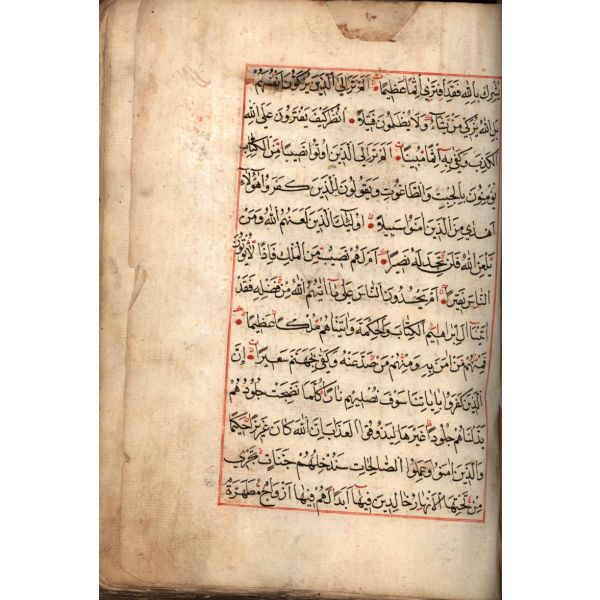 يشرك بالله فقد افترى اثما عظيما الم تر الى الذين يزكون انفسهم
بل الله يزكي من يشاء ولا يظلمون فتيلا انظر كيف يفترون على الله
الكذب وكفى به اثما مبينا الم تر الى الذين اوتوا نصيبا من الكتاب
يؤمنون بالجبت والطاغوت ويقولون للذين كفروا هؤلاء
اهدى من الذين امنوا سبيلا اولئك الذين لعنهم الله ومن
يلعن الله فلن تجد له نصيرا ام لهم نصيب من الملك فاذا لا يؤتون
الناس نقيرا ام يحسدون الناس على ما اتيهم الله من فضله فقد
اتينا ال ابراهيم الكتاب والحكمة واتيناهم ملكا عظيما
فمنهم من امن به ومنهم من صد عنه وكفى بجهنم سعيرا ان
الذين كفروا باياتنا سوف نصليهم نارا كلما نضجت جلودهم
بدلناهم جلودا غيرها ليذوقوا العذاب ان الله كان عزيزا حكيما
والذين امنوا وعملوا الصالحات سندخلهم جنات تجري
من تحتها الانهار خالدين فيها ابدا لهم فيها ازواج مطهرة